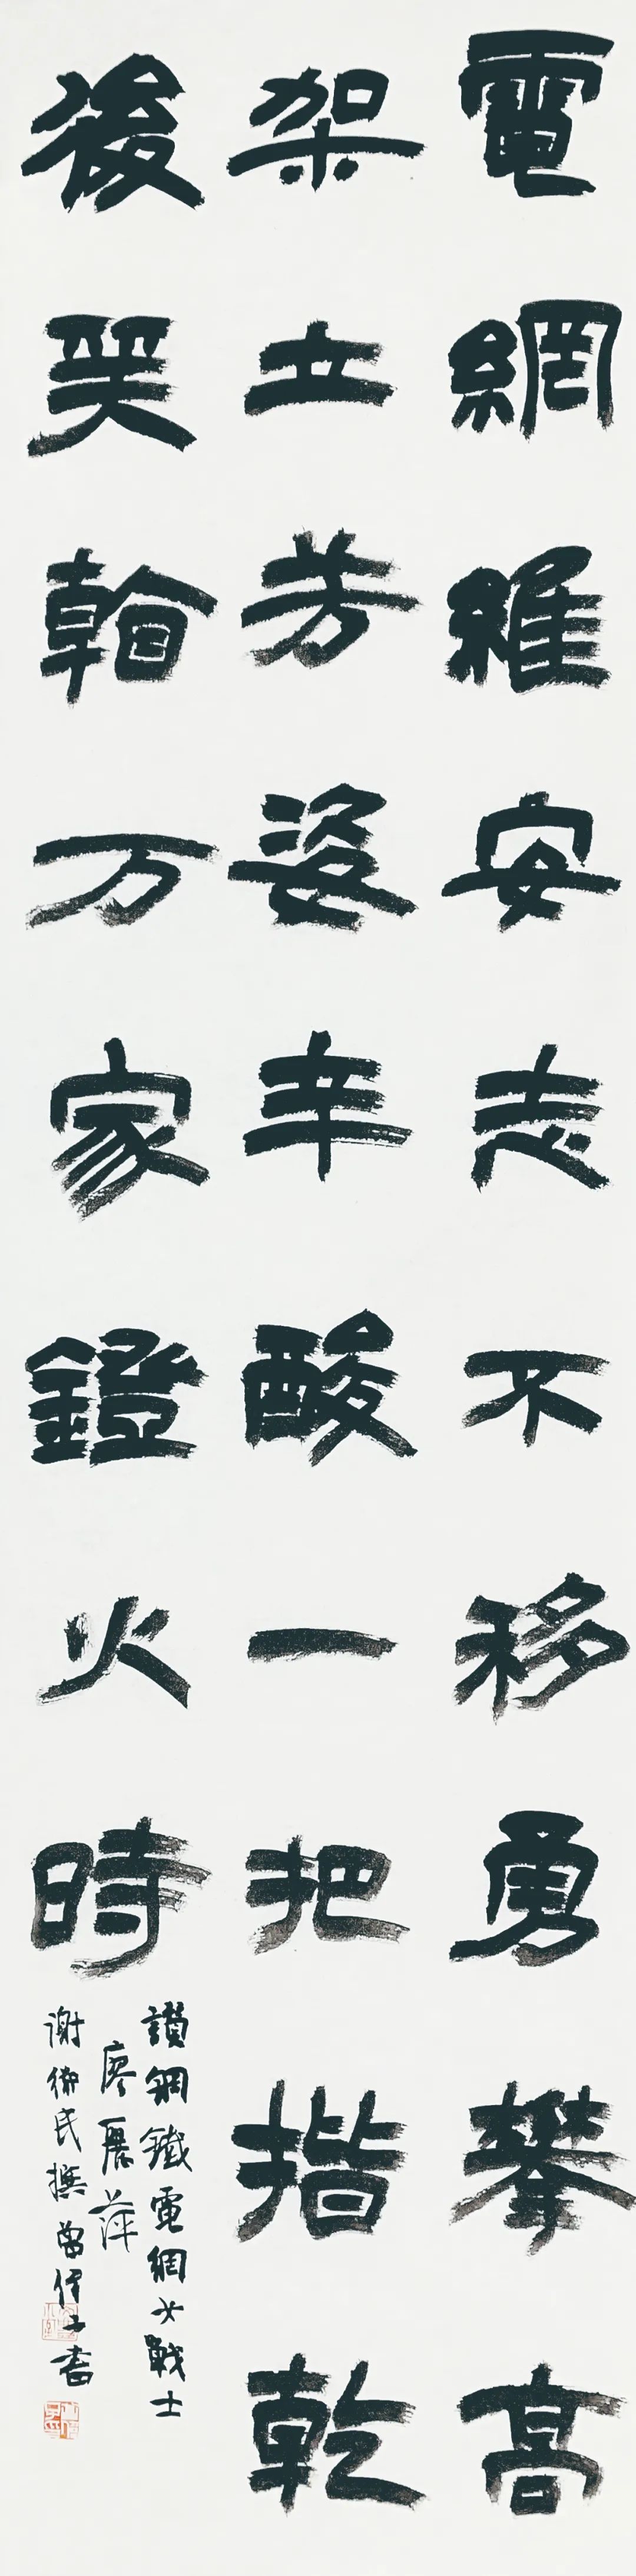 電網維安志不移勇攀高
架立芳姿辛酸一把揩乾
後笑万家鐙火時
讚鋼鐵電網女戰士
廖麗萍
謝衛民撰 曾書